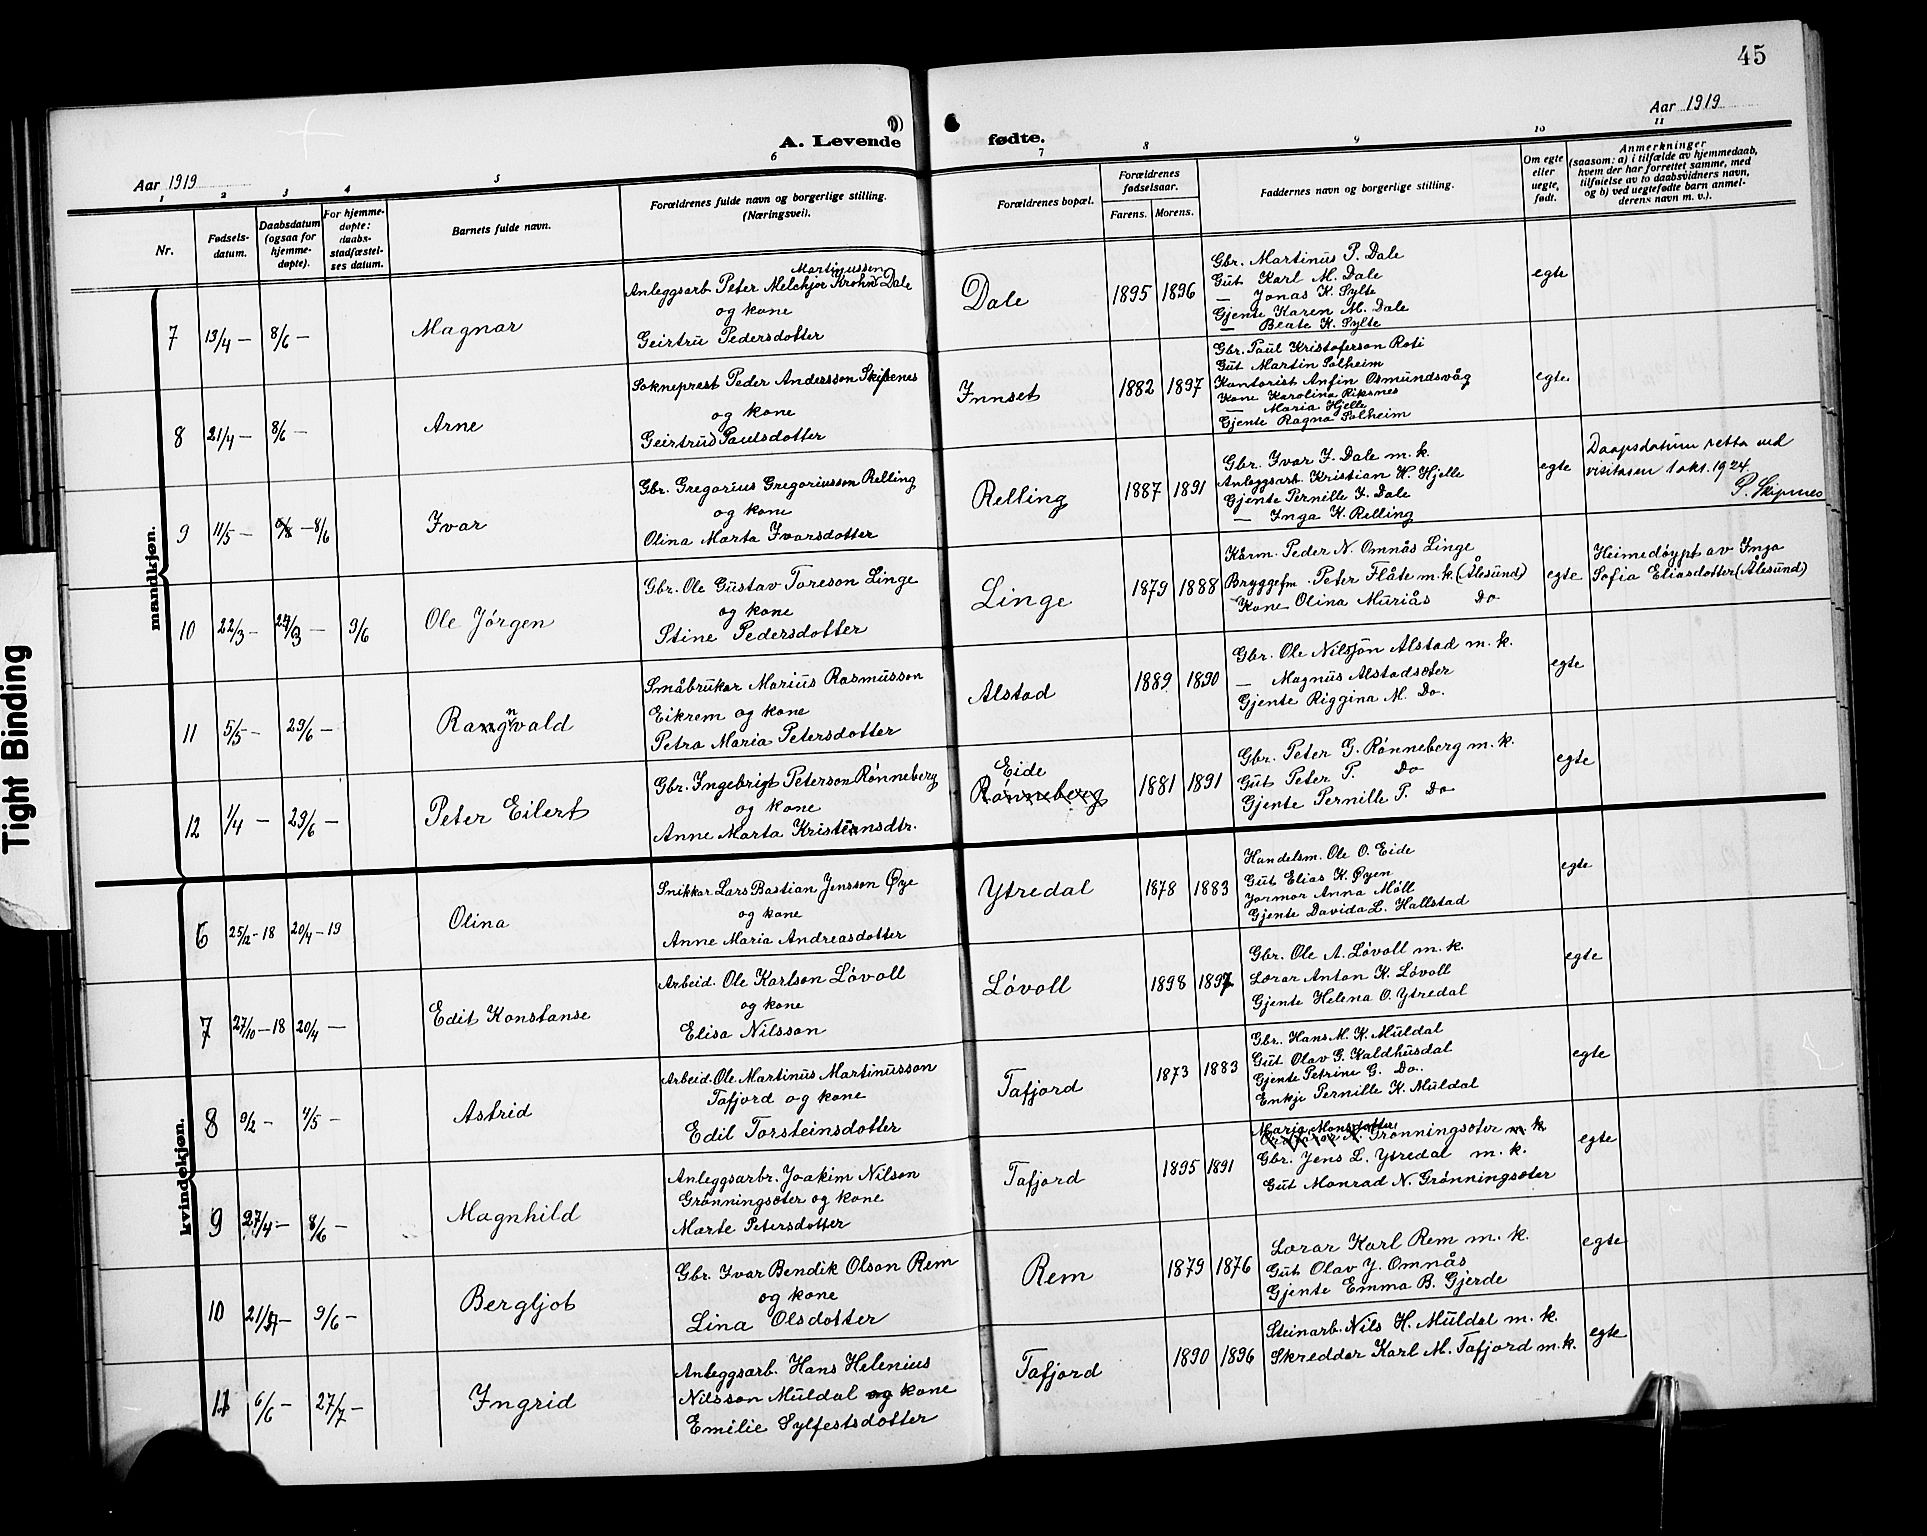 45
Aar 1919
A. Levende
fødte.
Aar 1919
1 2 3 4 5 6 7 8 9 10 11
Nr.
Fødsels-
datum.
Daabsdatum
(ogsaa for
hjemme-
døpte).
For hjemme-
døpte:
daabs-
stadfæstel-
ses datum.
Barnets fulde navn.
Forældrenes fulde navn og borgerlige stilling.
(Næringsvei).
Forældrenes bopæl.
Forældrenes
fødselsaar.
Farens. Morens.
Faddernes navn og borgerlige stilling.
Om egte
eller
uegte,
født.
Anmerkninger
(saasom: a) i tilfælde av hjemmedaab,
hvem der har forrettet samme, med
tilføielse av to daabsvidners navn,
og b) ved uegtefødte barn anmel-
derens navn m. v.).
mandkjøn.
7 13/4 — 8/6 — Magnar
Martinussen
Anleggsarb Peter Melchjor Krohn Dale
og kone
Geirtru Pedersdotter
Dale 1895 1896
Gbr. Martinus P. Dale
Gut Karl M. Dale
— Jonas K. Sylte
Gjente Karen M. Dale
— Beate K. Sylte
egte
8 21/4 — 8/6 — Arne
Sokneprest Peder Andersson Skipenes
og kone
Geirtrud Paulsdotter
Innset 1882 1897
Gbr. Paul Kristoferson Roti
Gut Martin Solheim
Kontorist Anfin Osmundsvåg
Kone Karolina Riksnes
— Maria Hjelle
Gjente Ragna Solheim
egte
9 11/5 — — 8/6 Ivar
Gbr. Gregorius Gregoriusson Relling
og kone
Olina Marta Ivarsdotter
Relling 1887 1891
Gbr. Ivar I. Dale m. k.
Anleggsarb. Kristian K. Hjelle
Gjente Pernille I. Dale
— Inga K. Relling
egte
Daapsdatum retta ved
visitasen 1 okt. 1924.
P. Skipenes
10 22/3 — 24/3 — 9/6 Ole Jørgen
Gbr. Ole Gustav Toreson Linge
og kone
Stine Pedersdotter
Linge 1879 1888
Kårm. Peder N. Omnås Linge
Bryggefm. Peter Flåte m. k. (Ålesund)
Kone Olina Muriås Do
egte
Heimedøypt av Inga
Sofia Eliasdotter (Ålesund)
11 5/5 — 29/6 — Rangvald
Småbrukar Marius Rasmusson
Eikrem og kone
Petra Maria Petersdotter
Alstad 1889 1890
Gbr. Ole Nilsjon Alstad m. k.
— Magnus Alstadsæter
Gjente Riggina M. Do.
egte
12 1/4 — 29/6 — Peter Eilert
Gbr. Ingebrigt Peterson Rønneberg
og kone
Anne Marta Kristiansdtr.
Eide
Rønneberg 1881 1891
Gbr. Peter G. Rønneberg m. k.
Gut Peter P. Do
Gjente Pernille P. Do
egte
kvindekjøn.
6 25/12 – 18 20/4 – 19 Olina
Snikkar Lars Bastian Jensson Øye
og kone
Anne Maria Andreasdotter
Ytredal 1878 1883
Handelsm. Ole O. Eide
Gut Elias K. Øyen
Jormor Anna Moll
Gjente Davida L. Hallstad
egte
7 27/10 – 18 20/4 — Edit Konstanse
Arbeid. Ole Karlson Løvoll
og kone
Elisa Nilsson
Løvoll 1898 1897
Gbr. Ole A. Løvoll m. k.
Lærar Anton K. Løvoll
Gjente Helena O. Ytredal
egte
8 9/2 — 4/5 — Astrid
Arbeid. Ole Martinus Martinusson
Tafjord og kone
Edil Torsteinsdotter
Tafjord 1873 1883
Gbr. Hans M. K. Muldal
Gut Olav G. Kaldhusdal
Gjente Petrine G. Do.
Enkje Pernille K. Muldal
egte
9 27/4 — 8/6 — Magnhild
Anleggsarbr. Joakim Nilson
Grønningsæter og kone
Marte Petersdotter
Tafjord 1895 1891
Maria Monsdotter
Grønningsæter m. k
Gbr. Jens L. Ytredal m. k.
Gut Monrad N. Grønningsæter
egte
10 — 9/6 — Bergljot
Gbr. Ivar Bendik Olson Rem
og kone
Lina Olsdotter
Rem 1879 1876
Lærar Karl Rem m. k.
Gut Olav J. Omnås
Gjente Emma B. Gjerde
egte
11 6/6 — 27/7 — Ingrid
Anleggsarb. Hans Helenius
Nilsson Muldal og kone
Emilie Sylfestsdotter
Tafjord 1890 1896
Steinarb. Nils H. Muldal m. k.
Skreddar Karl M. Tafjord m. k.
egte
Tight Binding